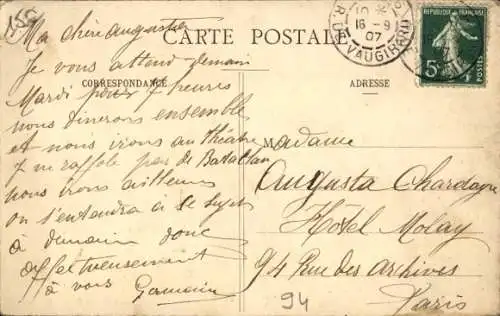 150
CARTE POSTALE
CORRESPONDANCE
ADRESSE
R. DE VAUGIRARD
16 - 9
07
REPUBLIQUE FRANÇAISE
5c
POSTES
Ma chère Augusta
Je vous attend demain
Mardi pour 7 heures
nous dinerons ensemble
et nous irons au théâtre
J'y raffole pas de Bataclan
nous irons ailleurs
on s'entendra à ce sujet
à demain donc
affectueusement
à vous Germain
Madame
Augusta Chardayre
Hôtel Molay
94 Rue des Archives
Paris
94